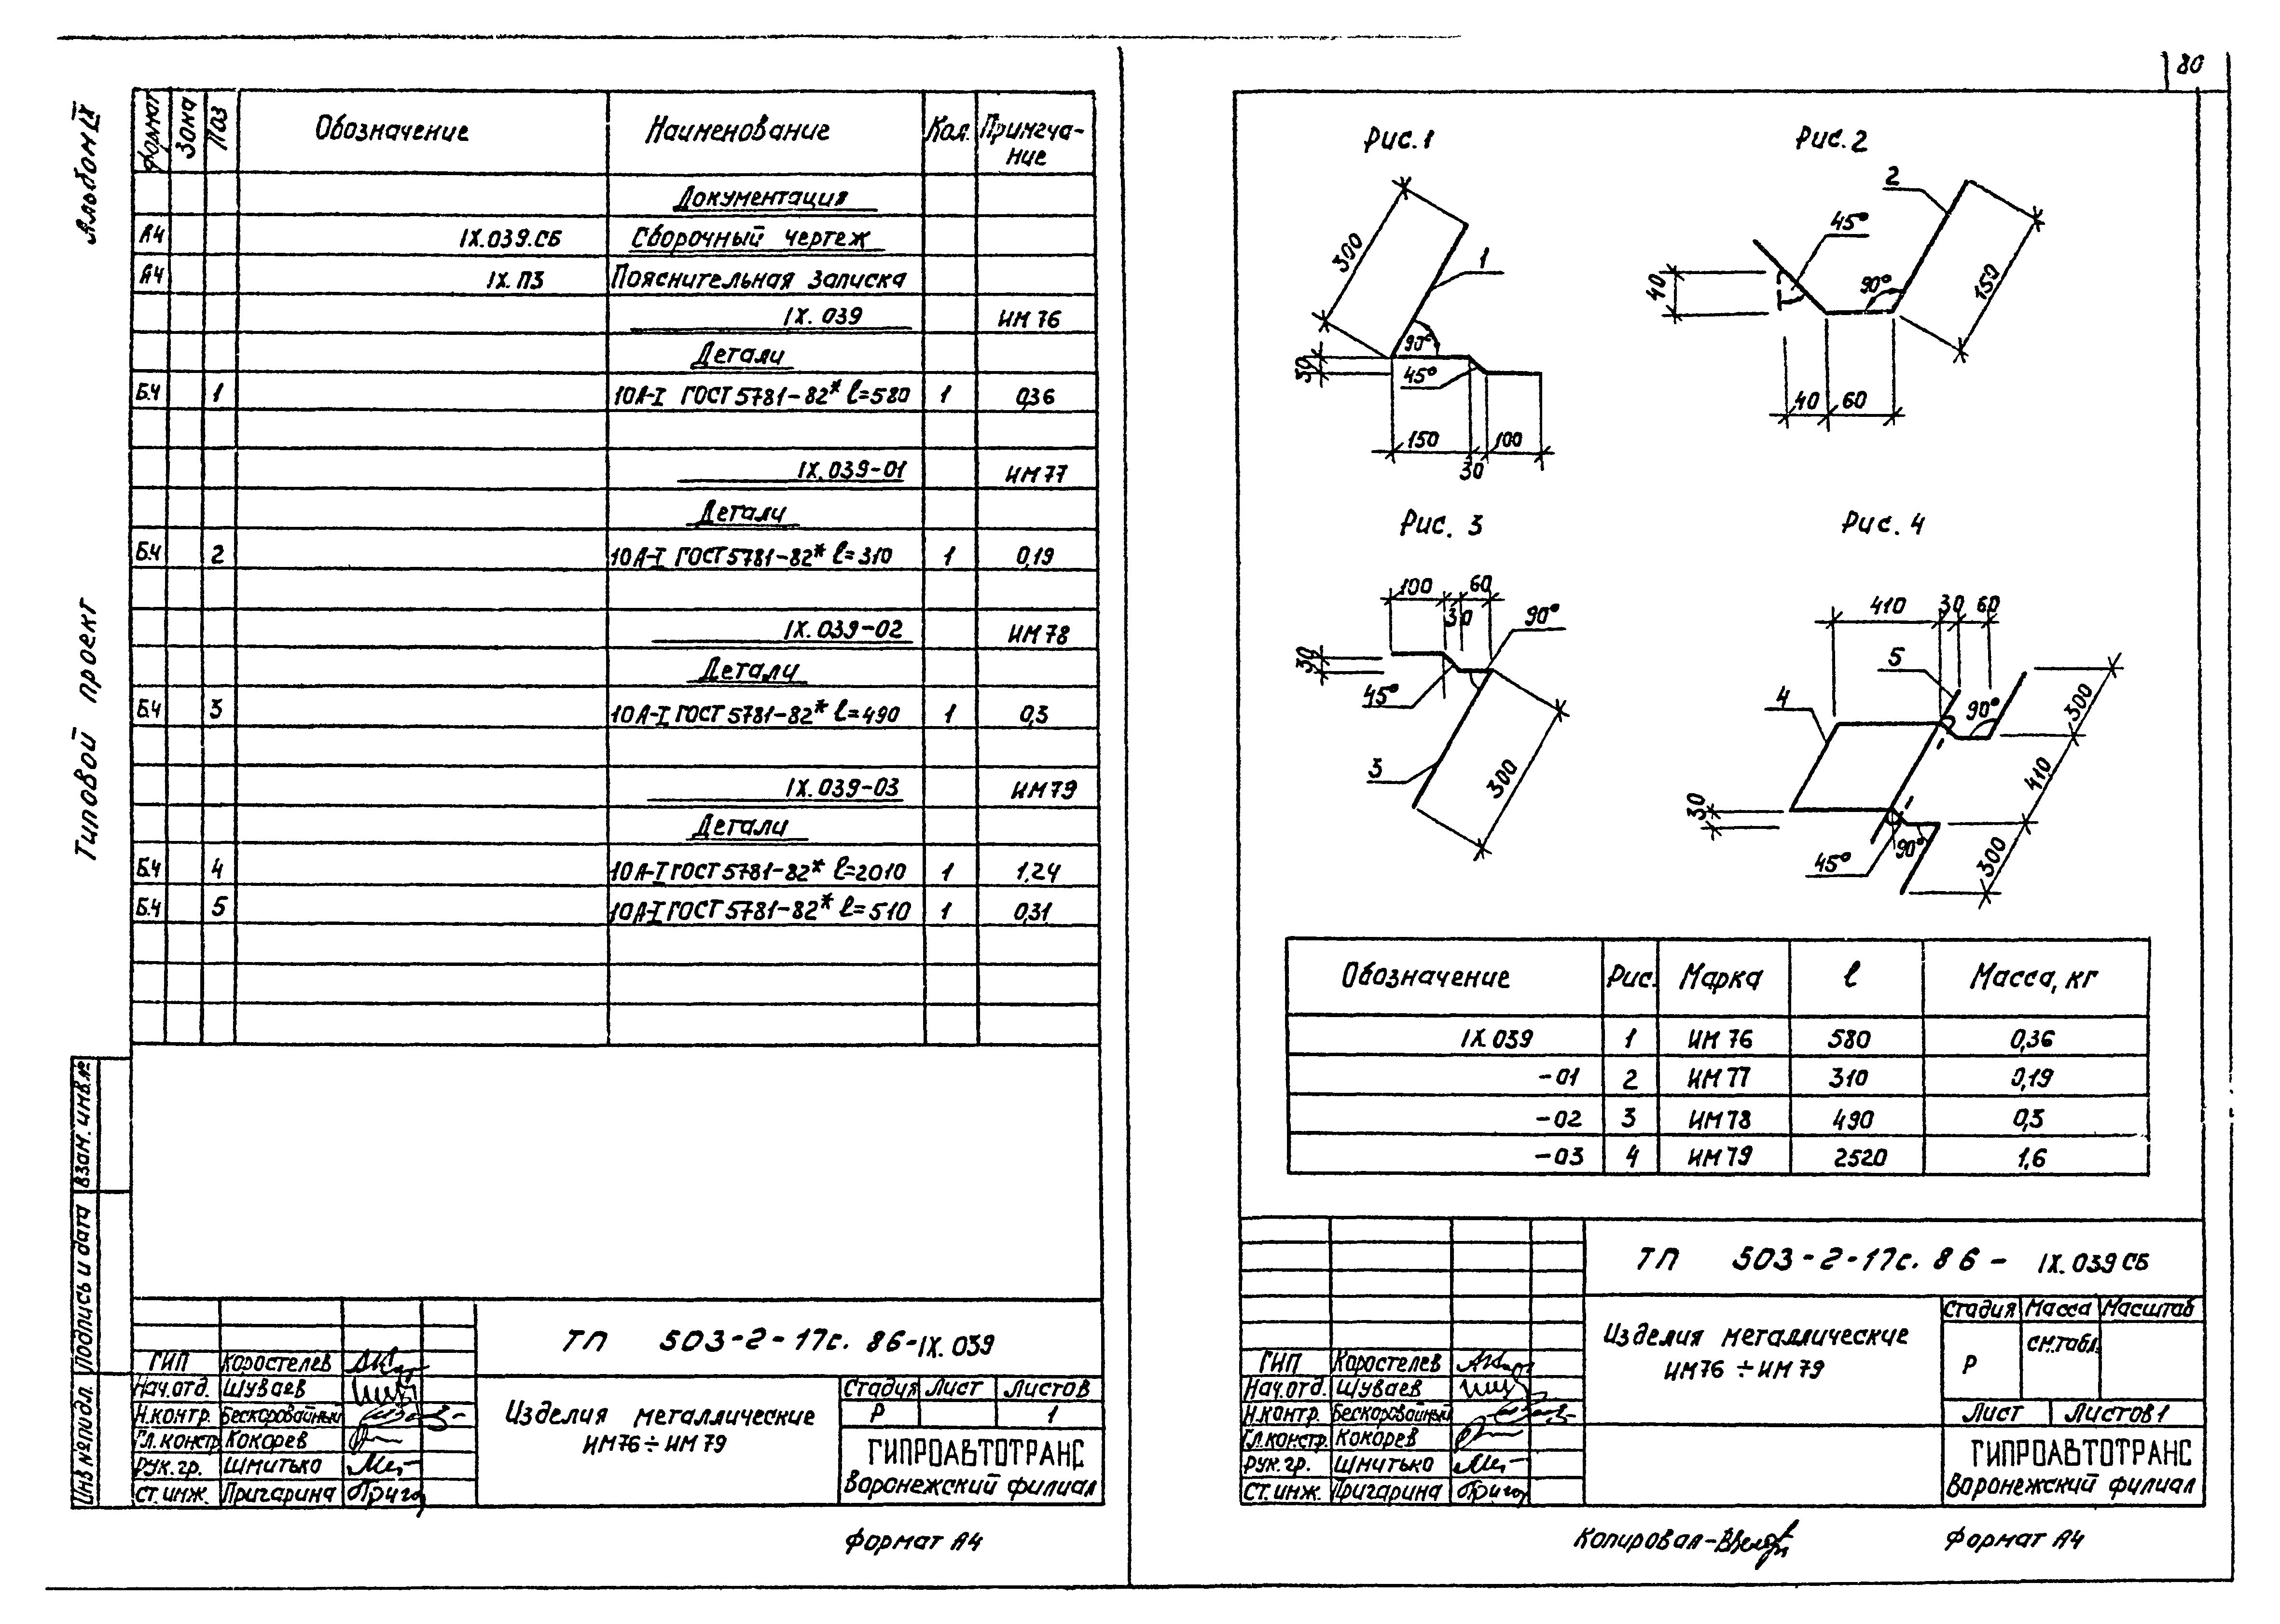 80
Альбом IX
Типовой проект
Формат Зона Поз Обозначение Наименование Кол. Примеча-
ние
Документация
А4 IX.039.СБ Сборочный чертеж
А4 IX.ПЗ Пояснительная записка
IX.039 ИМ 76
Детали
Б.Ч 1 10А-I ГОСТ 5781-82* ℓ=580 1 0,36
IX.039-01 ИМ 77
Детали
Б.Ч 2 10А-I ГОСТ 5781-82* ℓ=310 1 0,19
IX.039-02 ИМ 78
Детали
Б.Ч 3 10А-I ГОСТ 5781-82* ℓ=490 1 0,3
IX.039-03 ИМ 79
Детали
Б.Ч 4 10А-I ГОСТ 5781-82* ℓ=2010 1 1,24
Б.Ч 5 10А-I ГОСТ 5781-82* ℓ=510 1 0,31
Инв № подл. Подпись и дата Взам. инв. №
ТП 503-2-17с. 86-IX.039
ГИП Коростелев
Нач.отд. Шуваев
Н.контр. Бескоровайный
Гл.констр Кокорев
Рук.гр. Шмитько
Ст.инж. Пригарина
Изделия металлические
ИМ76 ÷ ИМ 79
Стадия Лист Листов
Р 1
ГИПРОАВТОТРАНС
Воронежский филиал
Формат А4
Рис. 1
300
1
90°
30
45°
150
30
100
Рис. 2
2
45°
40
90°
150
40
60
Рис. 3
100
60
30
90°
30
45°
3
300
Рис. 4
410
30
60
5
4
90°
300
410
30
90°
45°
300
Обозначение Рис. Марка ℓ Масса, кг
IX.039 1 ИМ 76 580 0,36
-01 2 ИМ 77 310 0,19
-02 3 ИМ 78 490 0,3
-03 4 ИМ 79 2520 1,6
ТП 503-2-17с. 86- IX.039 СБ
ГИП Коростелев
Нач.отд. Шуваев
Н.контр. Бескоровайный
Гл.констр. Кокорев
Рук.гр. Шмитько
Ст.инж. Пригарина
Изделия металлические
ИМ76 ÷ ИМ 79
Стадия Масса Масштаб
Р см.табл.
Лист Листов 1
ГИПРОАВТОТРАНС
Воронежский филиал
Копировал-
Формат А4